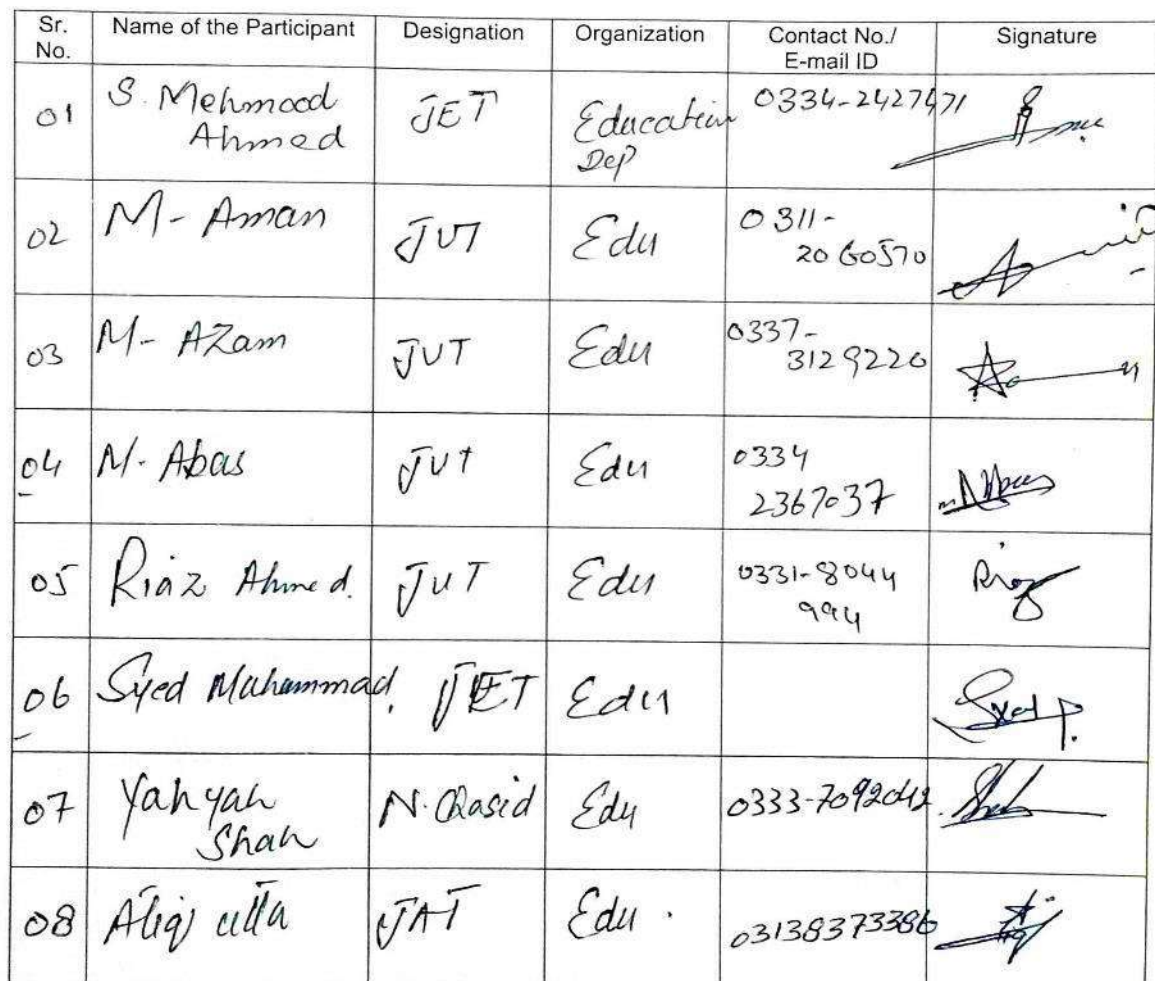 Sr. No. Name of the Participant Designation Organization Contact No./ E-mail ID Signature
01 S. Mehmood Ahmed JET Education Dep 0334-2427471
02 M- Aman JUT Edu 0311-2060570
03 M- AZam JUT Edu 0337-3129220
04 M. Abas JUT Edu 0334 2367037
05 Riaz Ahmed. JUT Edu 0331-8044994 Riaz
06 Syed Muhammad. JET Edu Syed
07 Yahyah Shah N. Qasid Edu 0333-7092042
08 Atiq ulla JAT Edu. 03138373386